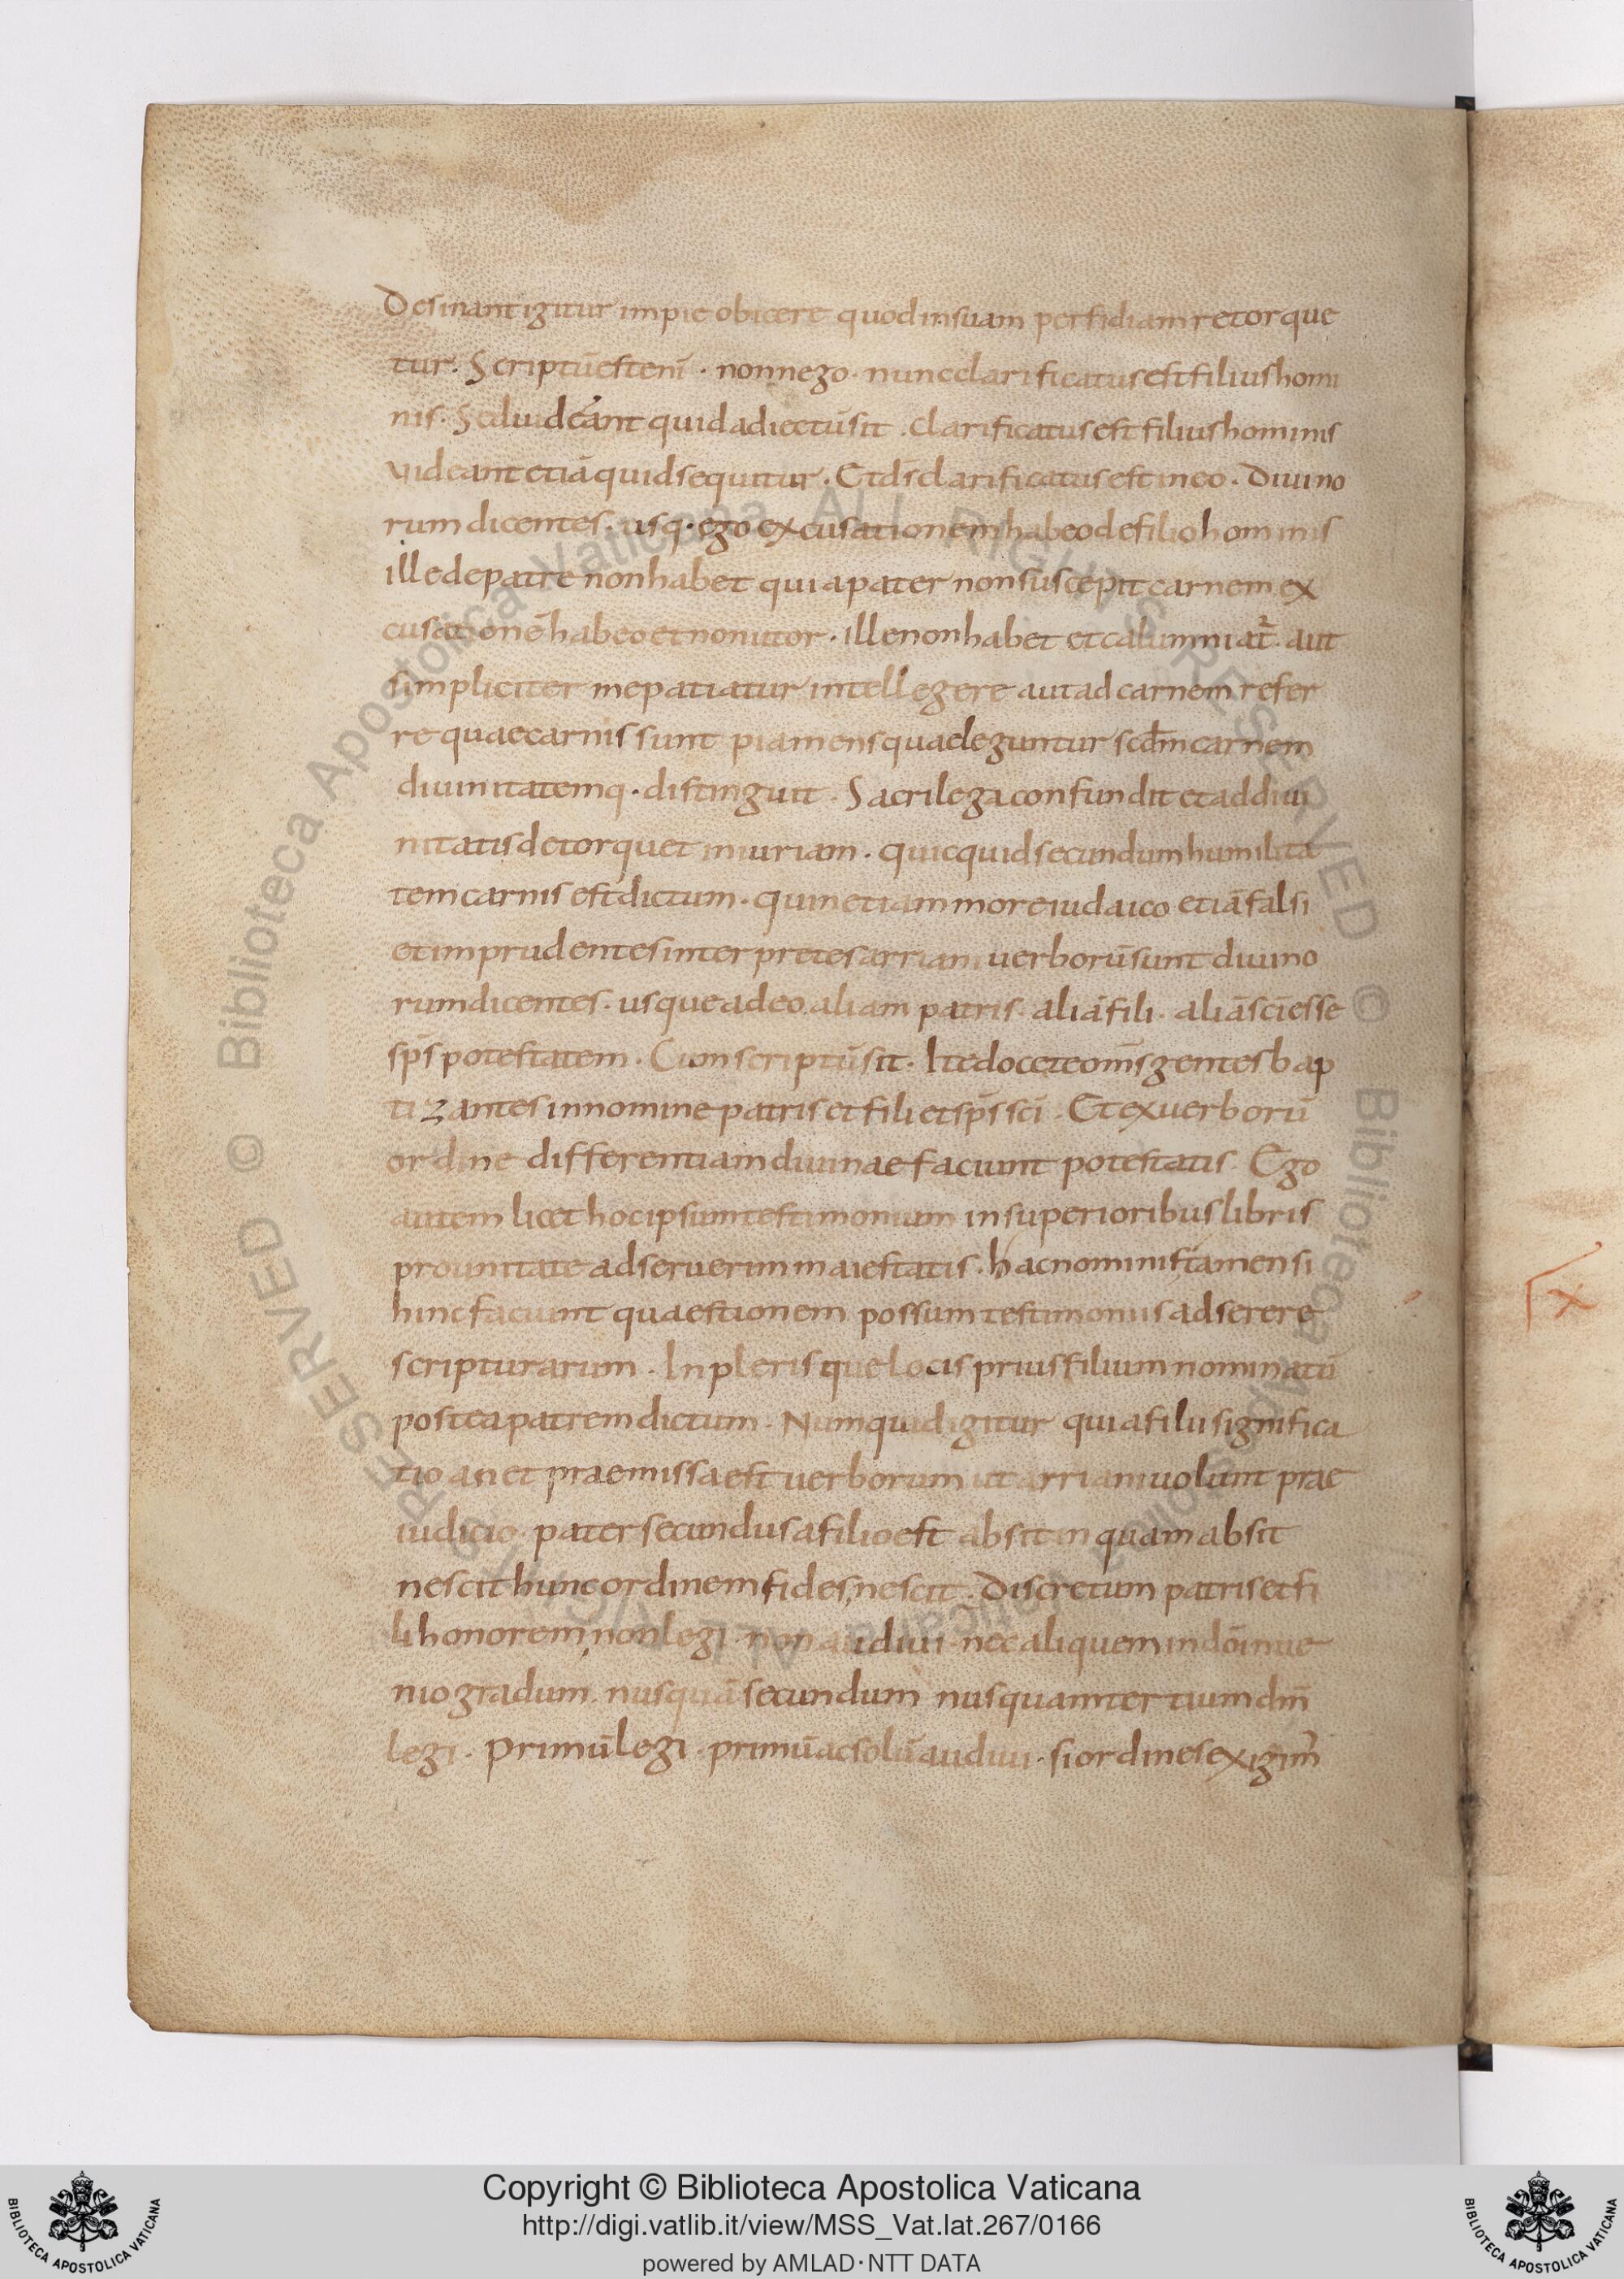 Desinant igitur impie obicere quod insuam perfidiam retorque
tur. Scriptū est enī · non nego · nunc clarificatus est filius homi
nis · Sed uideant quid adiectū sit · clarificatus est filius hominis
uideant etiā quid sequitur · Et d̄s clarificatus est in eo · Diuino
rum dicentes · usq· ego excusationem habeo de filio hominis
ille de patre non habet quia pater non suscepit carnem ex
cusationē habeo et non utor · ille non habet et calumniat̄ · aut
simpliciter me patiatur intellegere aut ad carnem refer
re quae carnis sunt pia mens quae leguntur scd̄m carnem
diuinitatemq· distinguit · Sacrilega confundit et ad diui
nitatis detorquet iniuriam · quicquid secundum humilita
tem carnis est dictum · quin etiam more iudaico etiā falsi
et imprudentes interpretes arriani uerborū sunt diuino
rum dicentes · usque adeo aliam patris · aliā fili · aliā sc̄i esse
sp̄s potestatem · Cum scriptū sit · Ite docete om̄s gentes bap
tizantes in nomine patris et fili et sp̄s sc̄i · Et ex uerborū
ordine differentiam diuinae faciunt potestatis · Ego
autem licet hoc ipsum testimonium in superioribus libris
pro unitate adseruerim maiestatis · hac nominis tamen si
hinc faciunt quaestionem possum testimoniis adserere
scripturarum · In plerisque locis prius filium nominatū
postea patrem dictum · Numquid igitur quia filii significa
tio anet praemissa est uerborum ut arriani uolunt prae
iudicio · pater secundus a filio est absit inquam absit
nescit hunc ordinem fides, nescit · Discretum patris et fi
li honorem, non legi · non audiui · nec aliquem in dō inue
nio gradum · nusquā secundum nusquam tertium dm̄
legi · primū legi · primū ac solū audiui · si ordines exigim̄
x
Copyright © Biblioteca Apostolica Vaticana
http://digi.vatlib.it/view/MSS_Vat.lat.267/0166
powered by AMLAD·NTT DATA
BIBLIOTECA APOSTOLICA VATICANA
BIBLIOTECA APOSTOLICA VATICANA